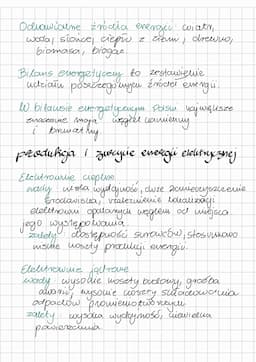 Odnawialne źródła energii: wiatr,
woda, słońce, ciepło z ziemi, drewno,
biomasa, biogaz.
Bilans energetyczny to zestawienie
udziału poszczególnych źródeł energii.
W bilansie energetycznym Polski największe
znaczenie mają węgiel kamienny
i brunatny.
produkcja i zużycie energii elektrycznej
Elektrownie cieplne
wady: niska wydajność, duże zanieczyszczenie
środowiska, uzależnienie lokalizacji
elektrowni opalanych węglem od miejsca
jego występowania.
zalety: dostępność surowców, stosunkowo
niskie koszty produkcji energii.
Elektrownie jądrowe
wady: wysokie koszty budowy, groźba
awarii, wysokie koszty składowania
odpadów promieniotwórczych
zalety: wysoka wydajność, niewielka
powierzchnia